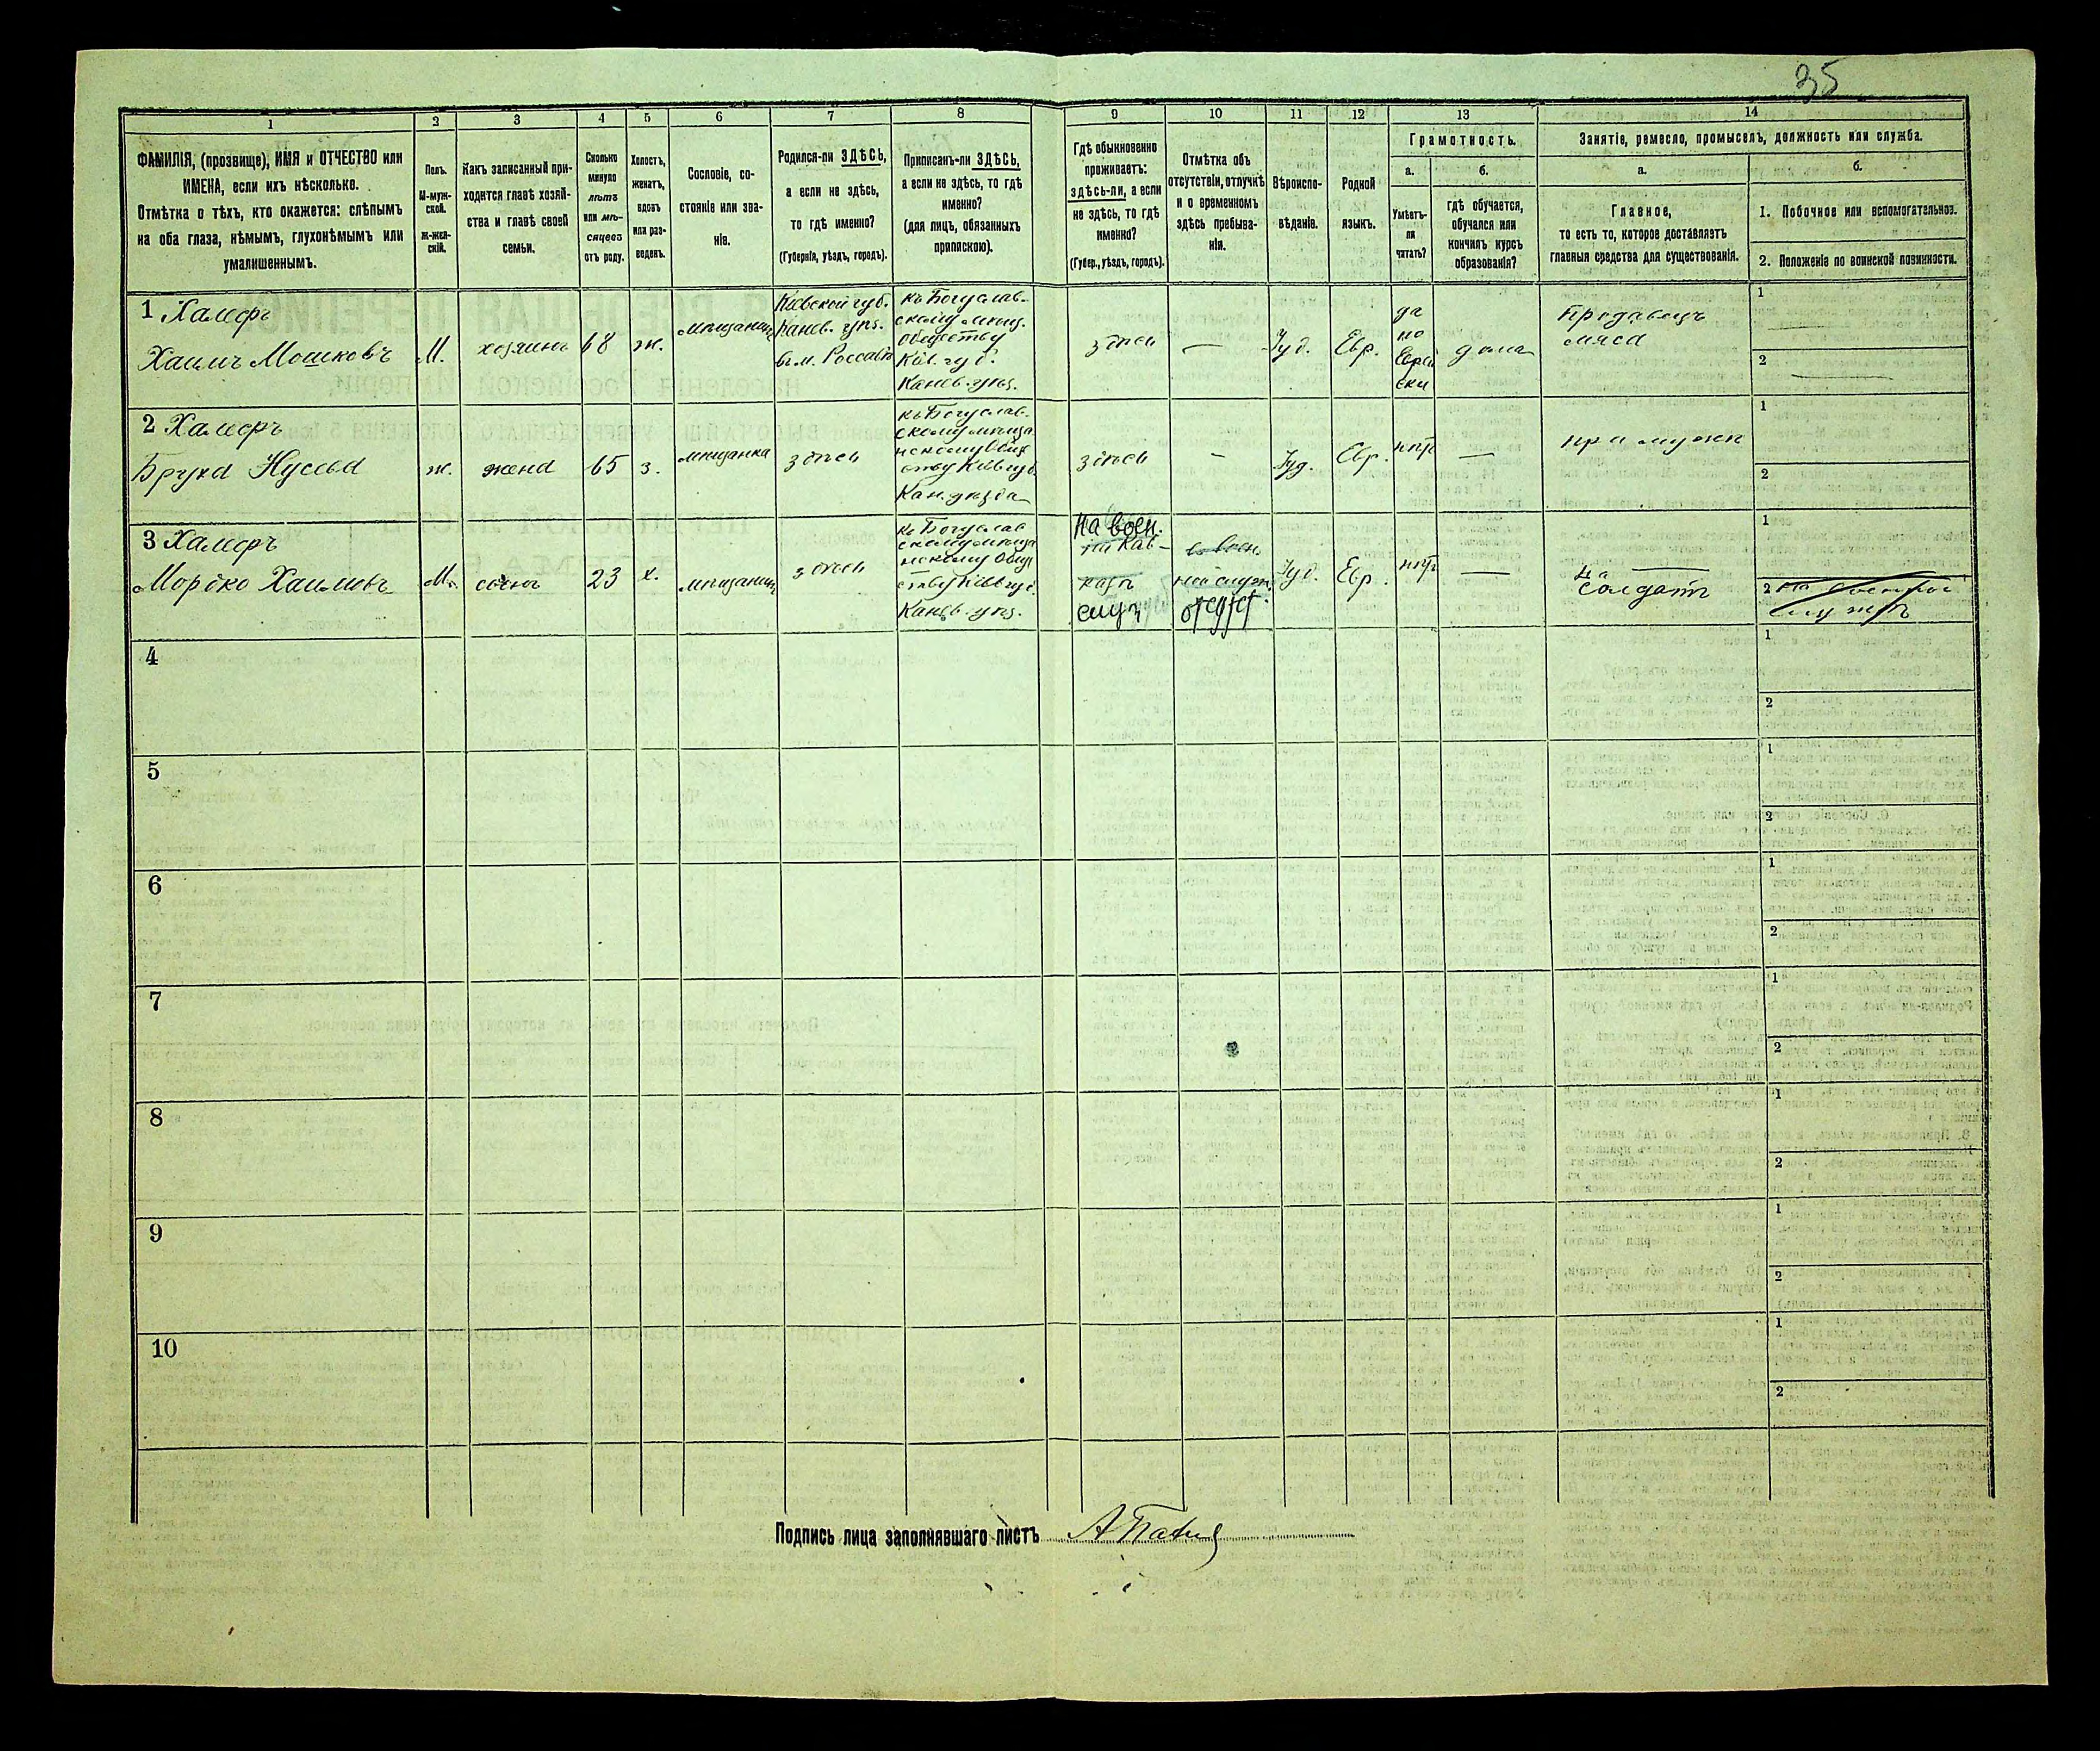 35
1 2 3 4 5 6 7 8 9 10 11 12 13 14
ФАМИЛІЯ, (прозвище), ИМЯ и ОТЧЕСТВО или
ИМЕНА, если ихъ нѣсколько.
Отмѣтка о тѣхъ, кто окажется: слѣпымъ
на оба глаза, нѣмымъ, глухонѣмымъ или
умалишеннымъ.
Полъ.
М-муж-
ской.
Ж-жен-
скій.
Какъ записанный при-
ходится главѣ хозяй-
ства и главѣ своей
семьи.
Сколько
минуло
лѣтъ
или мѣ-
сяцевъ
отъ роду.
Холостъ,
женатъ,
вдовъ
или раз-
веденъ.
Сословіе, со-
стояніе или зва-
ніе.
Родился-ли ЗДѢСЬ,
а если не здѣсь,
то гдѣ именно?
(Губернія, уѣздъ, городъ).
Приписанъ-ли ЗДѢСЬ,
а если не здѣсь, то гдѣ
именно?
(для лицъ, обязанныхъ
припискою).
Гдѣ обыкновенно
проживаетъ:
здѣсь-ли, а если
не здѣсь, то гдѣ
именно?
(Губер., уѣздъ, городъ).
Отмѣтка объ
отсутствіи, отлучкѣ
и о временномъ
здѣсь пребыва-
ніи.
Вѣроиспо-
вѣданіе.
Родной
языкъ.
Грамотность.
а.
Умѣетъ-
ли
читать?
б.
гдѣ обучается,
обучался или
кончилъ курсъ
образованія?
Занятіе, ремесло, промыселъ, должность или служба.
а.
Главное,
то есть то, которое доставляетъ
главныя средства для существованія.
б.
1. Побочное или вспомогательное.
2. Положеніе по воинской повинности.
1 Хамеръ
Хаимъ Мошковъ
М.
хозяинъ
68
ж.
мѣщанинъ
Кіевской губ.
Канев. уѣз.
в м. Россава
къ Богуслав-
скому мѣщ.
обществу
Кіев. губ.
Канев. уѣз.
здѣсь
—
Іуд.
Евр.
да
по
Еврей
ски
дома
Продавецъ
мяса
1
2
2 Хамеръ
Бруха Нусева
ж.
жена
65
з.
мѣщанка
здѣсь
къ Богуслав-
скому мѣща
нскому Общ
еству Кіев губ.
Кан. уѣзда
здѣсь
—
Іуд.
Евр.
нѣтъ
—
при мужѣ
1
2
3 Хамеръ
Мордко Хаимовъ
М.
сынъ
23
х.
мѣщанин
здѣсь
къ Богуслав
скому мѣща
нскому Общ
еству Кіев губ.
Канев. уѣз.
На воен.
на Кав-
казѣ
служ
в воен.
ной служ.
отсутст.
Іуд.
Евр.
нѣтъ
—
солдатъ
1
2 на военной
службѣ
4
1
2
5
1
2
6
1
2
7
1
2
8
1
2
9
1
2
10
1
2
Подпись лица заполнявшаго листъ